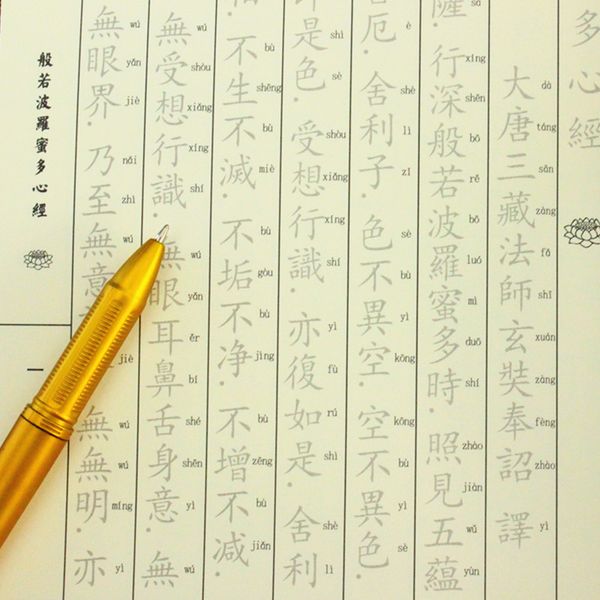 多心經
大唐三藏法師玄奘奉詔譯
dà táng sān zàng fǎ shī xuán zàng fèng zhào yì
薩。行深般若波羅蜜多時。照見五蘊
sà xíng shēn bō rě bō luó mì duō shí zhào jiàn wǔ yùn
厄。舍利子。色不異空。空不異色。
è shè lì zǐ sè bù yì kōng kōng bù yì sè
即是色。受想行識。亦復如是。舍利
shì sè shòu xiǎng xíng shí yì fù rú shì shè lì
不生不滅。不垢不净。不增不减。
bù shēng bù miè bù gòu bù jìng bù zēng bù jiǎn
無受想行識。無眼耳鼻舌身意。無
wú shòu xiǎng xíng shí wú yǎn ěr bí shé shēn yì wú
無眼界。乃至無意 無無明。亦
wú yǎn jiè nǎi zhì wú jiè wú wú míng yì
般若波羅蜜多心經
一